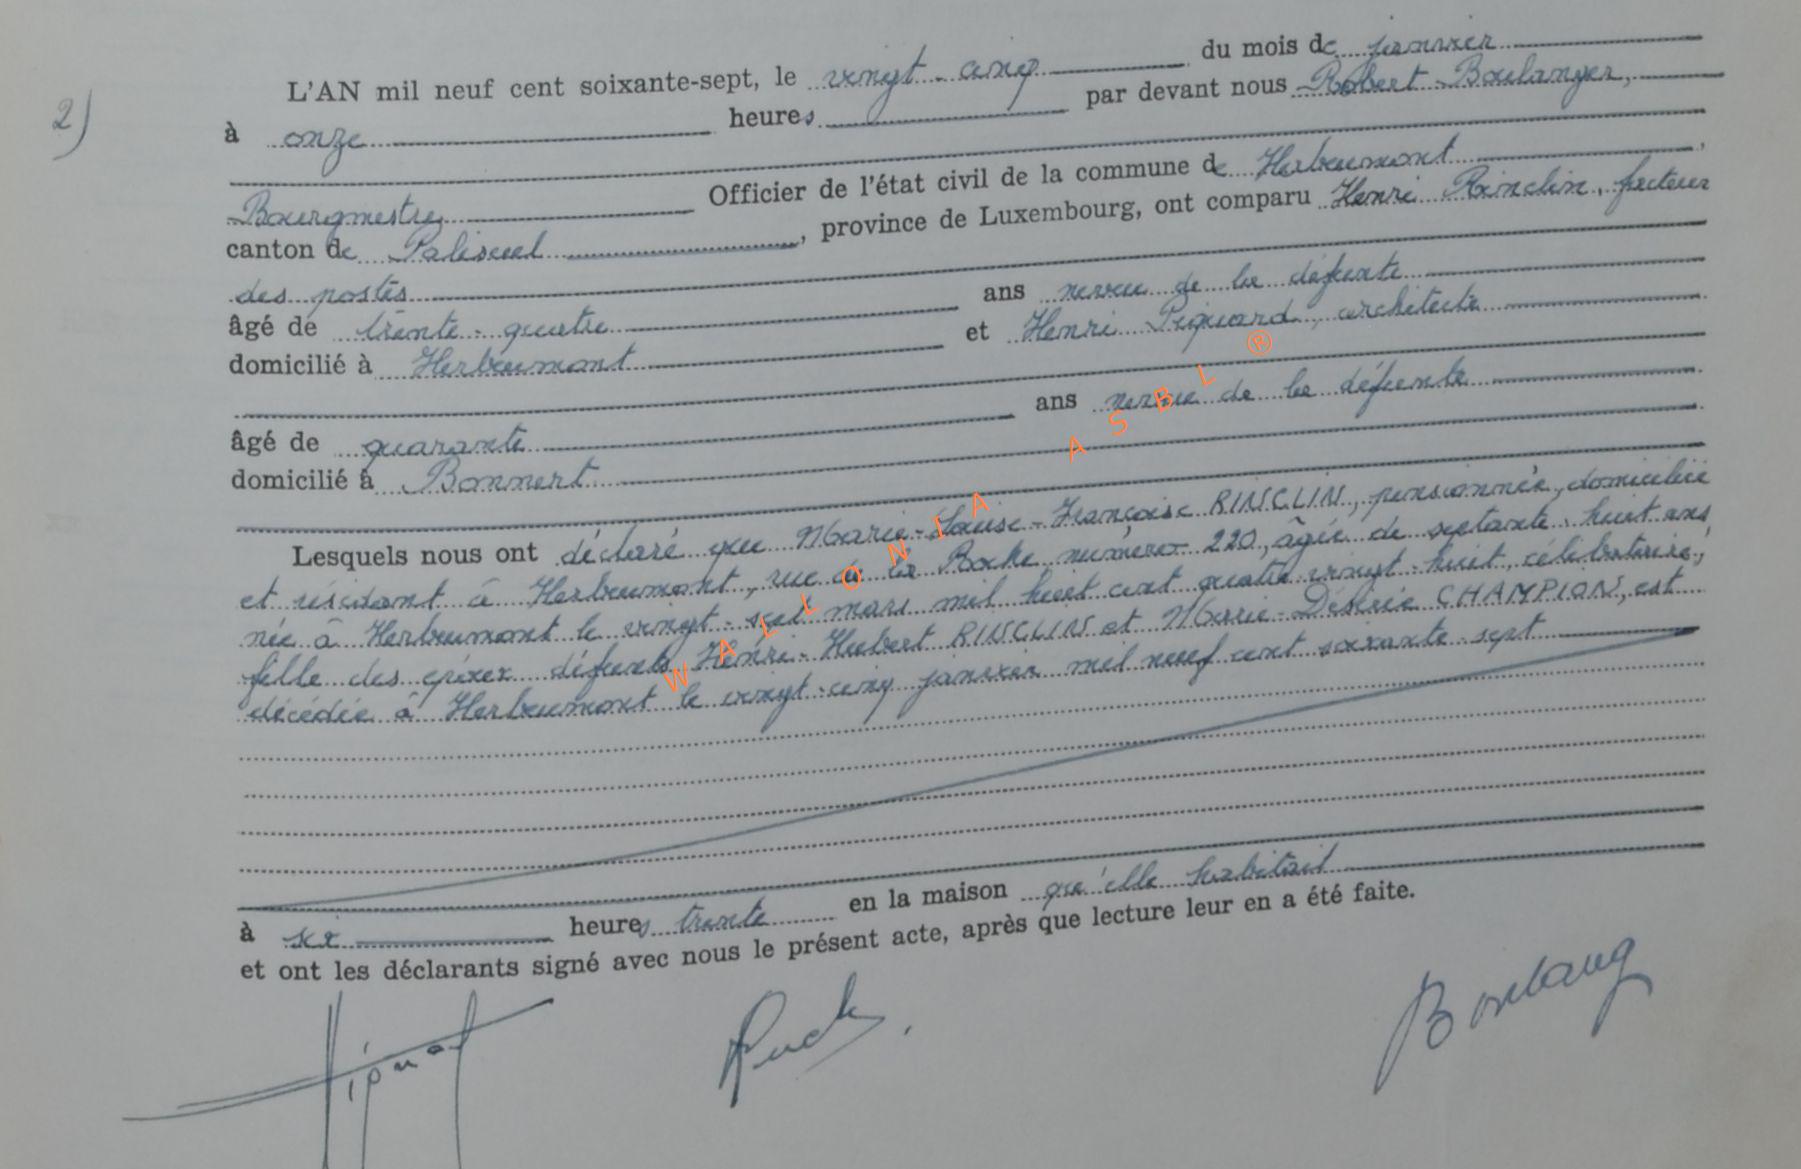 2)
L'AN mil neuf cent soixante-sept, le vingt-cinq du mois de janvier
à onze heures par devant nous Robert Boulanger,
Bourgmestre Officier de l'état civil de la commune de Herbeumont,
canton de Paliseul, province de Luxembourg, ont comparu Henri Rinclin, facteur
des postes
âgé de trente-quatre ans neveu de la défunte
domicilié à Herbeumont et Henri Piquard, architecte
âgé de quarante ans neveu de la défunte
domicilié à Bonnert
Lesquels nous ont déclaré que Marie-Louise-Françoise RINCLIN, pensionnée, domiciliée
et résidant à Herbeumont, rue de la Roche numéro 220, âgée de septante-huit ans,
née à Herbeumont le vingt-sept mars mil huit cent quatre vingt-huit, célibataire,
fille des époux défunts Henri-Hubert RINCLIN et Marie-Désirée CHAMPION, est
décédée à Herbeumont le vingt-cinq janvier mil neuf cent soixante-sept
à six heures trente en la maison qu'elle habitait
et ont les déclarants signé avec nous le présent acte, après que lecture leur en a été faite.
WALLONIA ASBL ®